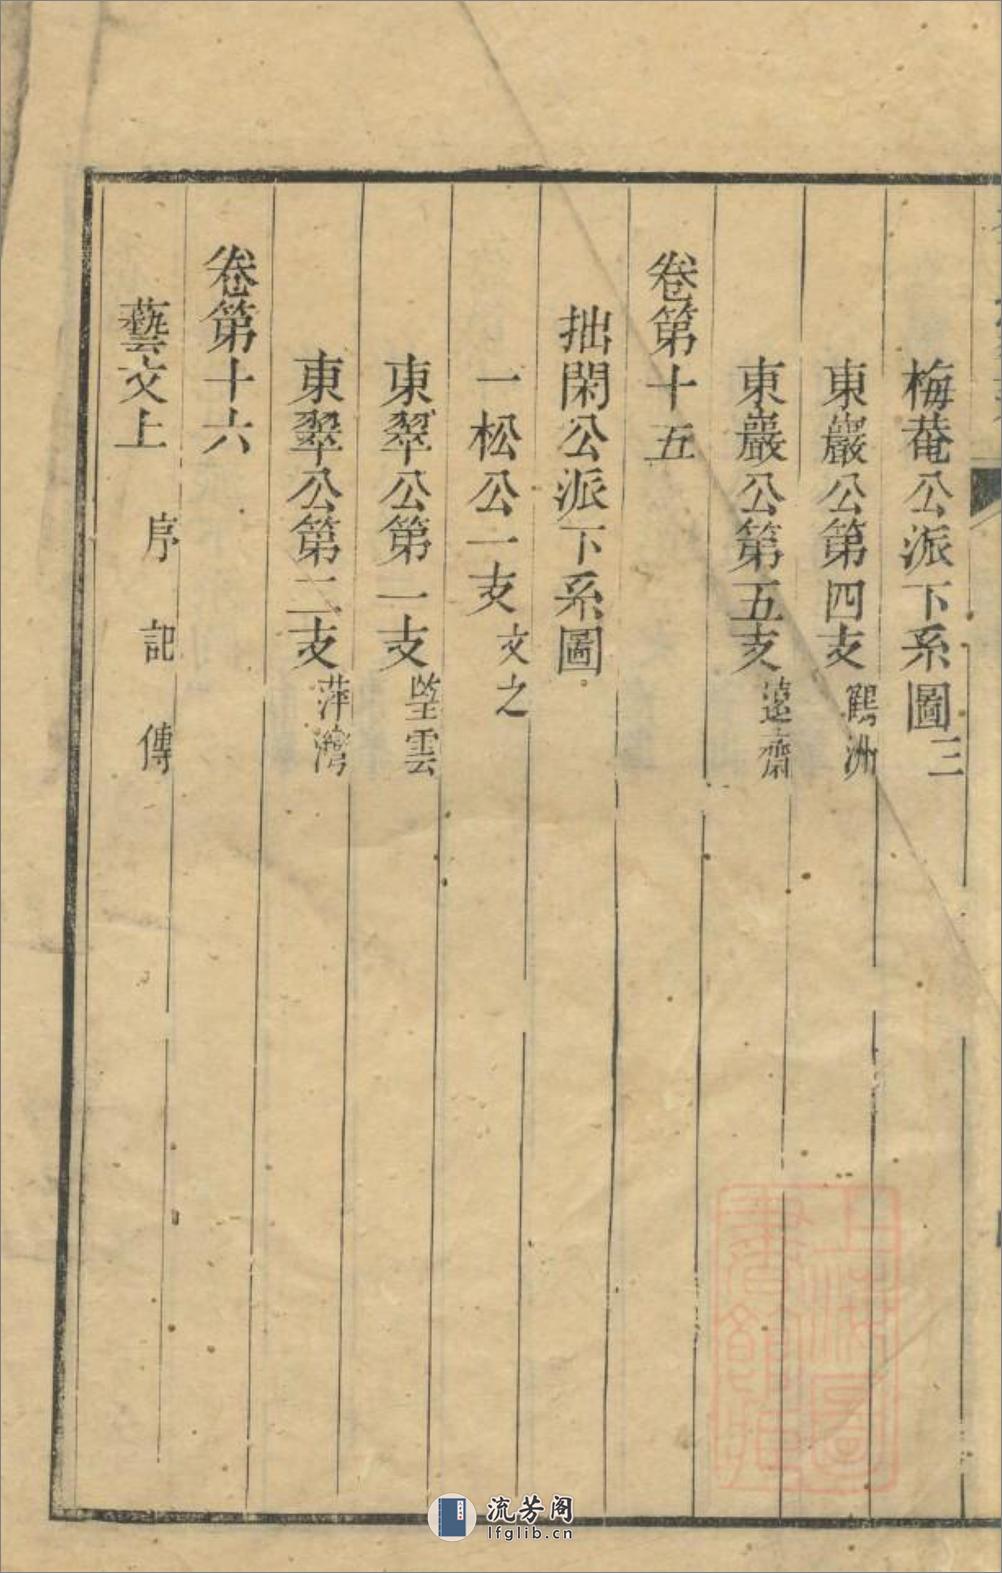 梅菴公派下系圖三
東巖公第四支 鶴洲
東巖公第五支 遠齋
卷第十五
拙閑公派下系圖
一松公一支 文之
東翠公第一支 望雲
東翠公第二支 萍灣
卷第十六
藝文上 序 記 傳
上海圖書館藏
流芳阁
lfglib.cn